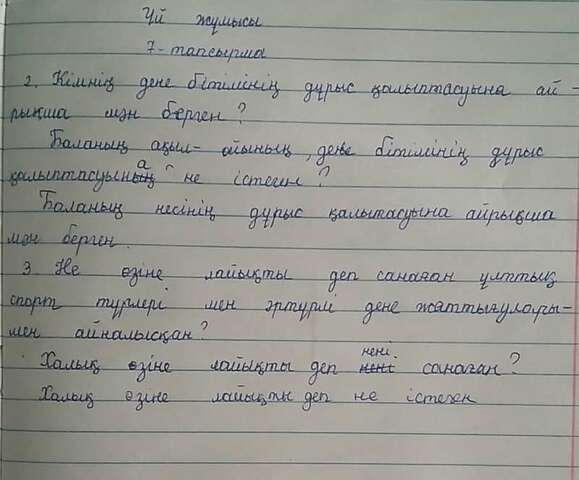 Үй жұмысы
7-тапсырма
2. Кімнің дене бітімінің дұрыс қалыптасуына ай-
рықша мән берген?
Баланың ақыл-ойының, дене бітімінің дұрыс
қалыптасуына не істеген?
Баланың несінің дұрыс қалытасуына айрықша
мән берген.
3. Не өзіне лайықты деп санаған ұлттық
спорт түрлері мен әртүрлі дене жаттығулары-
мен айналысқан?
Халық өзіне лайықты деп нені санаған?
Халық өзіне лайықты деп не істеген